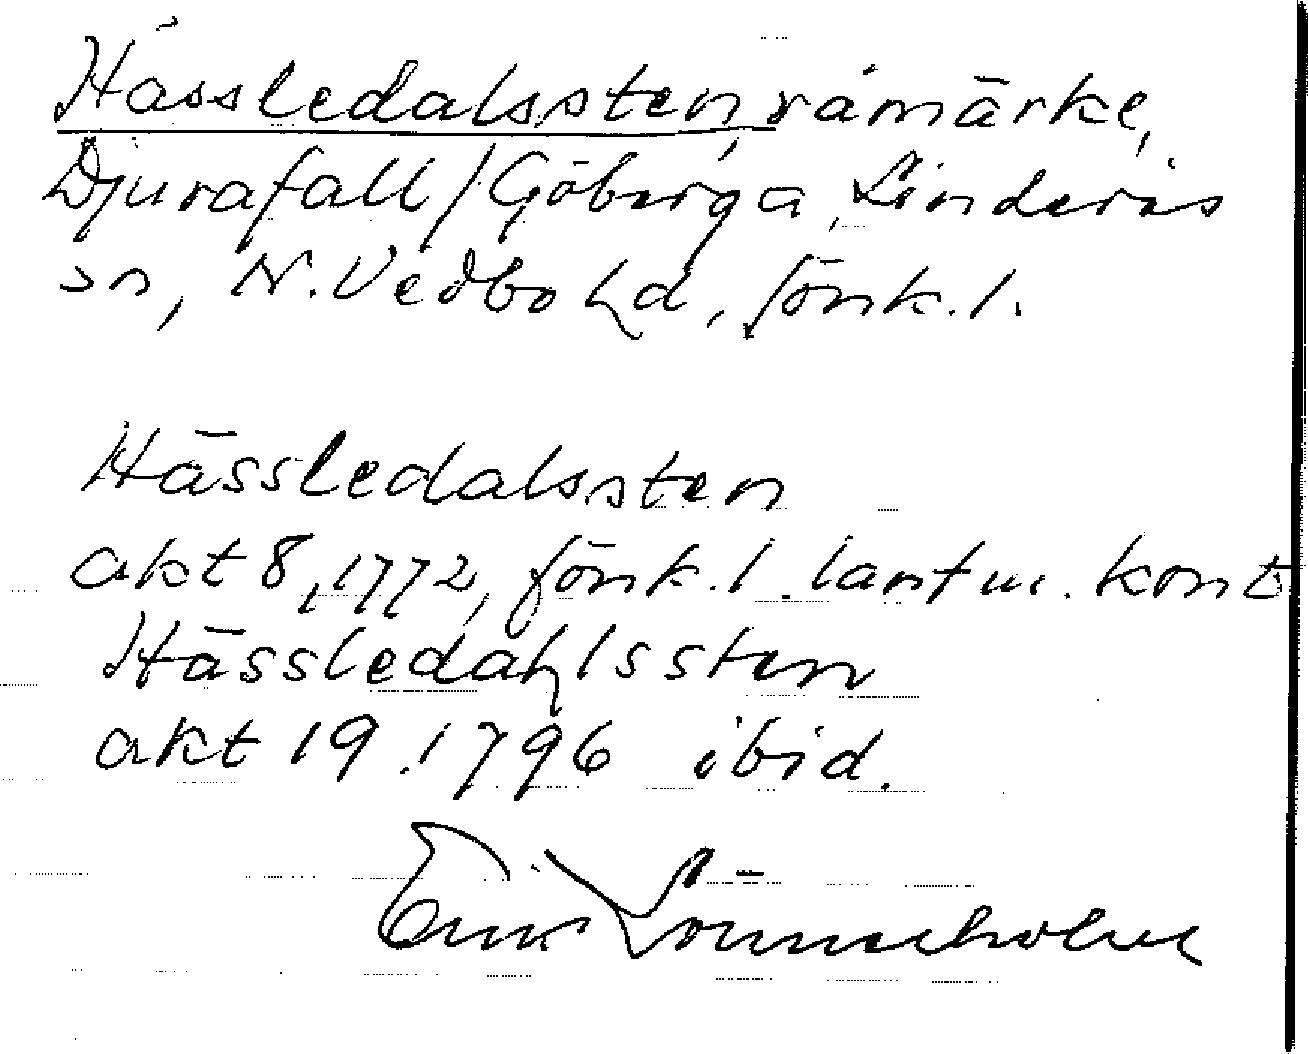 Hässledalssten, råmärke,
Djurafall/Göberga, Linderås
sn, N. Vedbo hd, Jönk. l.
Hässledalssten
akt 8, 1772, Jönk. l. lantm. kont
Hässledahlssten
akt 19. 1796 ibid.
Erik Lönnerholm